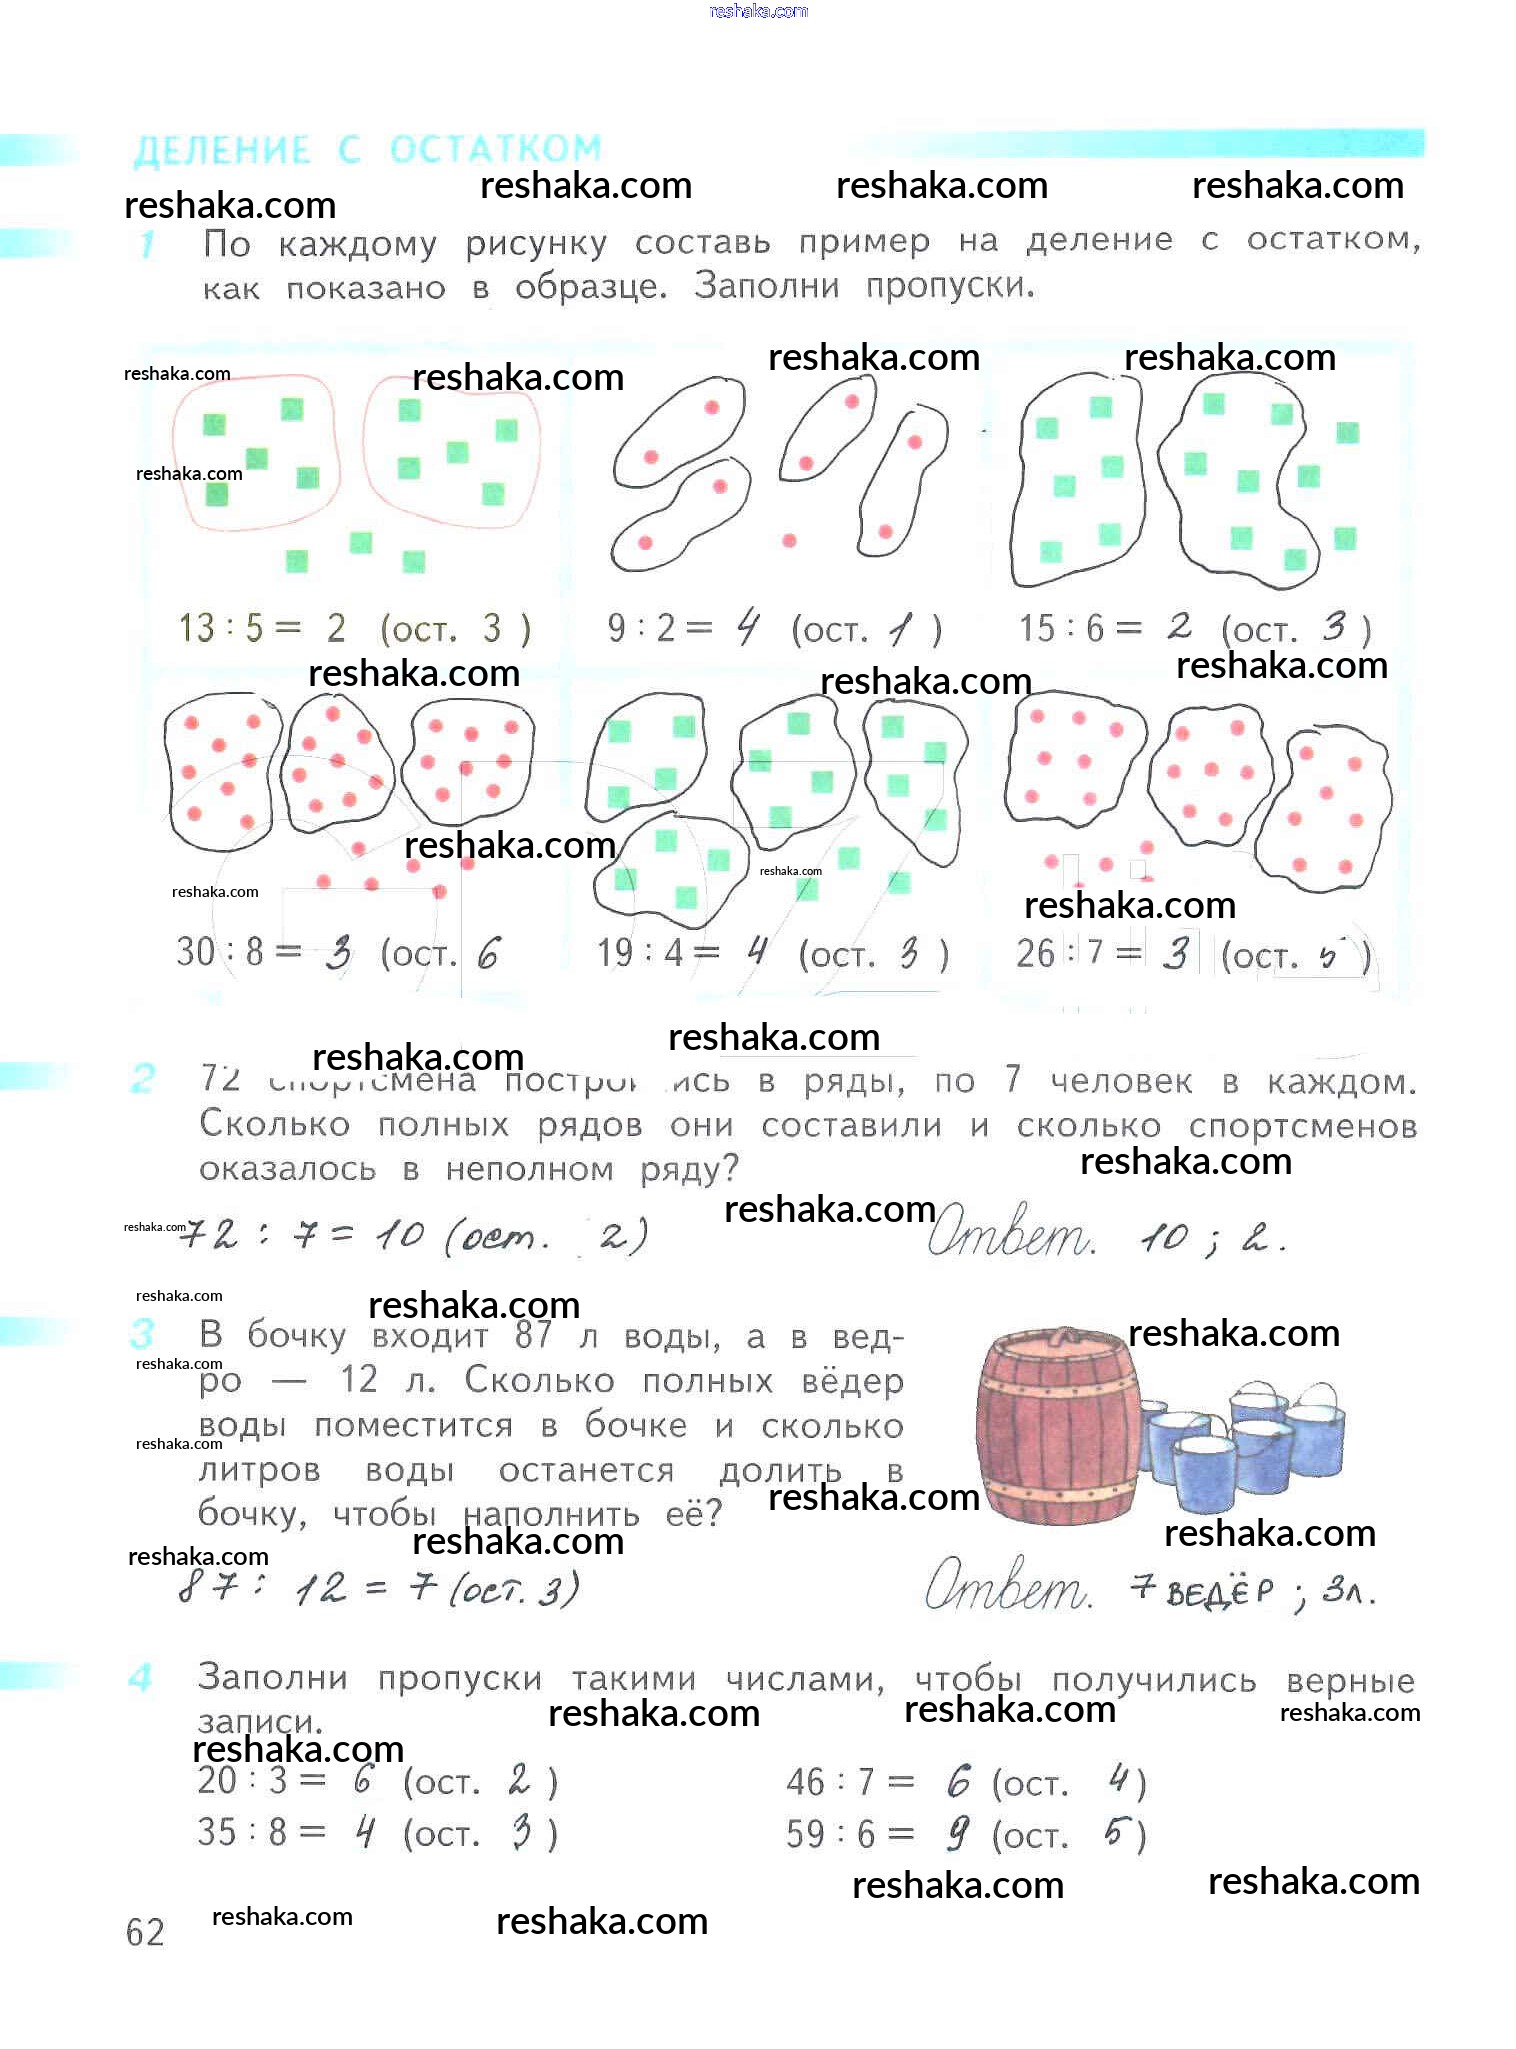 reshaka.com
ДЕЛЕНИЕ С ОСТАТКОМ
reshaka.com reshaka.com reshaka.com reshaka.com
1 По каждому рисунку составь пример на деление с остатком,
как показано в образце. Заполни пропуски.
reshaka.com reshaka.com reshaka.com reshaka.com
reshaka.com
13 : 5 = 2 (ост. 3 ) 9 : 2 = 4 (ост. 1 ) 15 : 6 = 2 (ост. 3 )
reshaka.com reshaka.com reshaka.com
reshaka.com reshaka.com reshaka.com reshaka.com
30 : 8 = 3 (ост. 6 19 : 4 = 4 (ост. 3 ) 26 : 7 = 3 (ост. 5 )
reshaka.com reshaka.com
2 72 спортсмена построились в ряды, по 7 человек в каждом.
Сколько полных рядов они составили и сколько спортсменов
оказалось в неполном ряду?
reshaka.com
reshaka.com reshaka.com
72 : 7 = 10 (ост. 2) Ответ. 10 ; 2.
reshaka.com reshaka.com
3 В бочку входит 87 л воды, а в вед-
reshaka.com
reshaka.com
ро — 12 л. Сколько полных вёдер
воды поместится в бочке и сколько
reshaka.com
литров воды останется долить в
reshaka.com
бочку, чтобы наполнить её?
reshaka.com reshaka.com reshaka.com
87 : 12 = 7 (ост. 3) Ответ. 7 ВЕДЁР ; 3л.
4 Заполни пропуски такими числами, чтобы получились верные
записи.
reshaka.com reshaka.com reshaka.com
reshaka.com
20 : 3 = 6 (ост. 2 ) 46 : 7 = 6 (ост. 4 )
35 : 8 = 4 (ост. 3 ) 59 : 6 = 9 (ост. 5 )
reshaka.com reshaka.com
reshaka.com reshaka.com
62